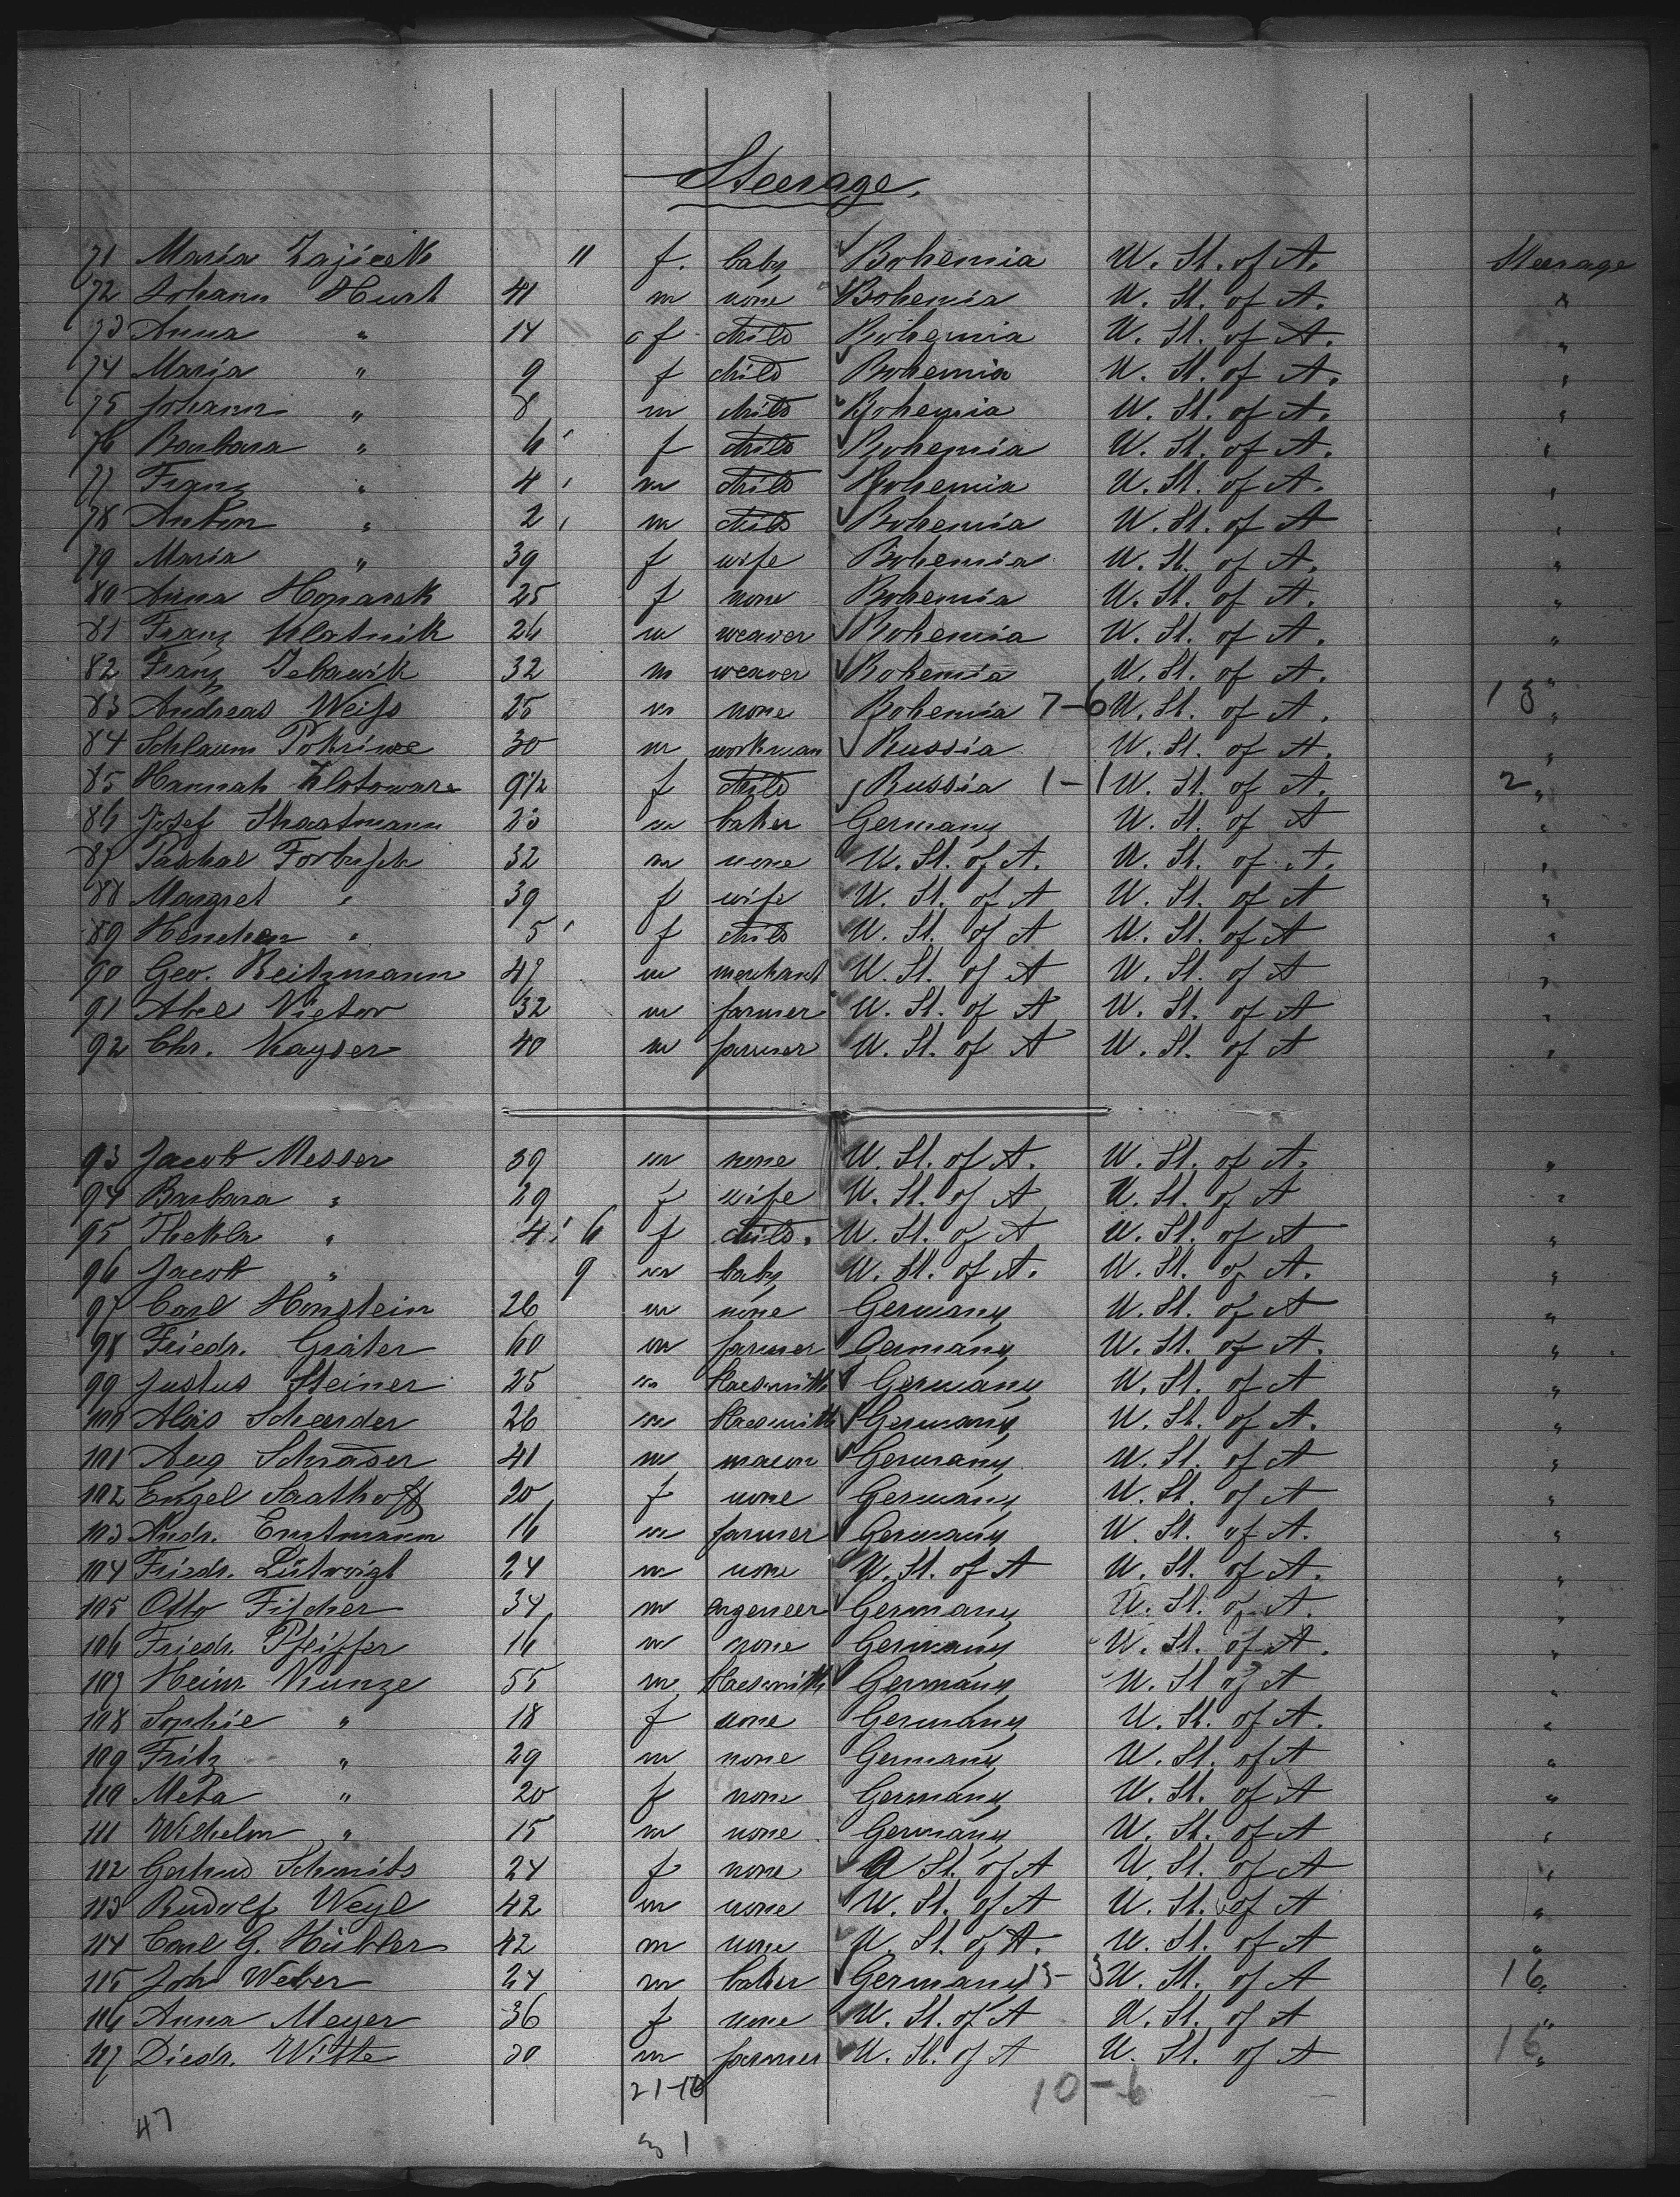 Steerage.
71 Maria Zajicek 11 f. baby Bohemia U. St. of A. Steerage
72 Johann Hurt 41 m none Bohemia U. St. of A. "
73 Anna " 14 f child Bohemia U. St. of A. "
74 Maria " 9 f child Bohemia U. St. of A. "
75 Johann " 8 m child Bohemia U. St. of A. "
76 Barbara " 6 f child Bohemia U. St. of A. "
77 Franz " 4 m child Bohemia U. St. of A. "
78 Anton " 2 m child Bohemia U. St. of A "
79 Maria " 39 f wife Bohemia U. St. of A. "
80 Anna 25 f none Bohemia U. St. of A. "
81 Franz Klatnik 26 m weaver Bohemia U. St. of A. "
82 Franz 32 m weaver Bohemia U. St. of A. "
83 Andreas Weiss 25 m none Bohemia 7-6 U. St. of A. 13 "
84 Schlaum 30 m workman Russia U. St. of A. "
85 Hannah 9 1/2 f child Russia 1-1 U. St. of A. 2 "
86 Josef m baker Germany U. St. of A "
87 Paschal 32 m none U. St. of A. U. St. of A. "
88 Margret " 39 f wife U. St. of A U. St. of A "
89 Henchen " 5 f child U. St. of A U. St. of A "
90 Geo. Reitzmann 47 m merchant U. St. of A U. St. of A "
91 Abel Victor 32 m farmer U. St. of A U. St. of A "
92 Chr. Kayser 40 m farmer U. St. of A U. St. of A "
93 Jacob Messer 39 m none U. St. of A. U. St. of A. "
94 Barbara " 29 f wife U. St. of A U. St. of A "
95 Thekla " 4 6 f child. U. St. of A U. St. of A "
96 Jacob " 9 m baby U. St. of A. U. St. of A. "
97 Carl Honstein 26 m none Germany U. St. of A "
98 Friedr. Gräter 60 m farmer Germany U. St. of A. "
99 Justus Steiner 25 m Germany U. St. of A "
100 Alois 26 m Germany U. St. of A. "
101 Aug Schrader 41 m mason Germany U. St. of A "
102 Engel Saathoff 20 f none Germany U. St. of A "
103 Andr. 16 m farmer Germany U. St. of A. "
104 Friedr. 24 m none U. St. of A U. St. of A. "
105 Otto Fischer 34 m engeneer Germany U. St. of A. "
106 Friedr. Pfeiffer 16 m none Germany U. St. of A. "
107 Heinr. Kunze 55 m Germany U. St of A "
108 Sophie " 18 f none Germany U. St. of A. "
109 Fritz " 29 m none Germany U. St. of A "
110 Meta " 20 f none Germany U. St. of A "
111 Wilhelm " 15 m none Germany U. St. of A "
112 Gertrud Schmits 24 f none U St. of A U. St. of A "
113 Rudolf Weyl 42 m none U. St. of A U. St. of A "
114 Carl G. Hübler 42 m none U. St. of A. U. St. of A "
115 Joh Weber 24 m baker Germany 13-3 U. St. of A 16 "
116 Anna Meyer 36 f none U. St. of A U. St. of A "
117 Diedr. Witte 30 m farmer U. St. of A U. St. of A 16 "
10-6
47
31